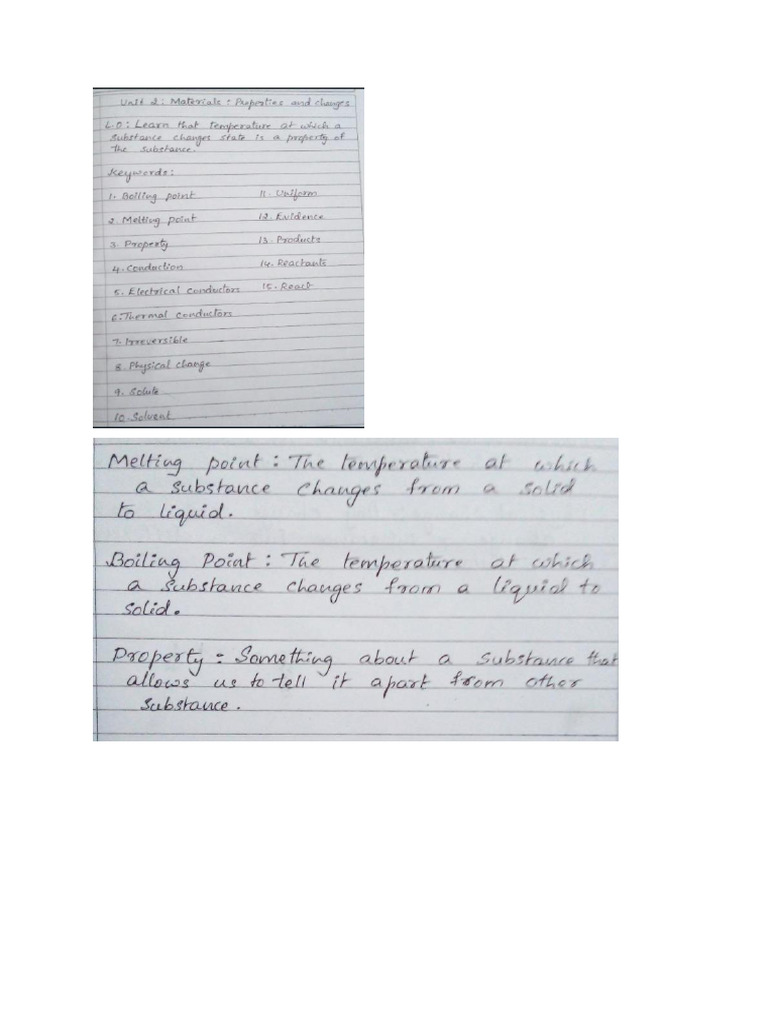 Unit 2: Materials: Properties and changes
L.O: Learn that temperature at which a
substance changes state is a property of
the substance.
Keywords:
1. Boiling point
2. Melting point
3. Property
4. Conduction
5. Electrical conductors
6. Thermal conductors
7. Irreversible
8. Physical change
9. Solute
10. Solvent
11. Uniform
12. Evidence
13. Products
14. Reactants
15. React
Melting point: The temperature at which
a substance changes from a solid
to liquid.
Boiling Point: The temperature at which
a substance changes from a liquid to
solid.
Property: Something about a substance that
allows us to tell it apart from other
substance.